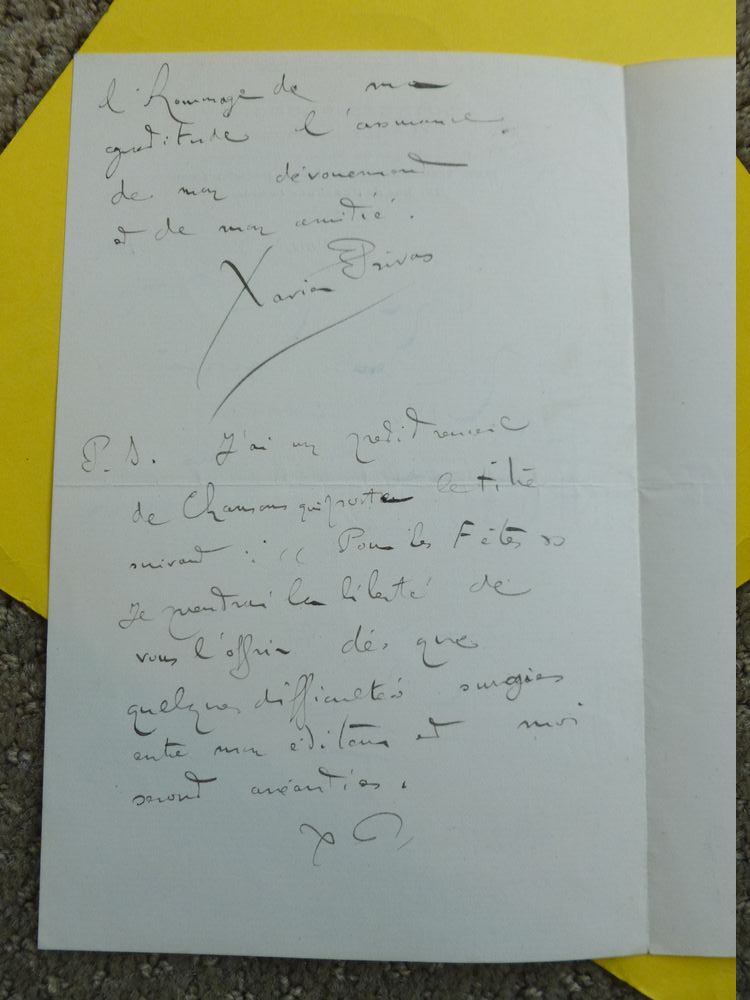 l'hommage de ma
gratitude l'assurance
de mon dévouement
et de mon amitié.
Xavier Privas
P. S. J'ai un petit recueil
de Chansons qui porte le titre
suivant : « Pour les Fêtes »
Je prendrai la liberté de
vous l'offrir dés que
quelques difficultés surgies
entre mon éditeur et moi
seront anéanties.
X P